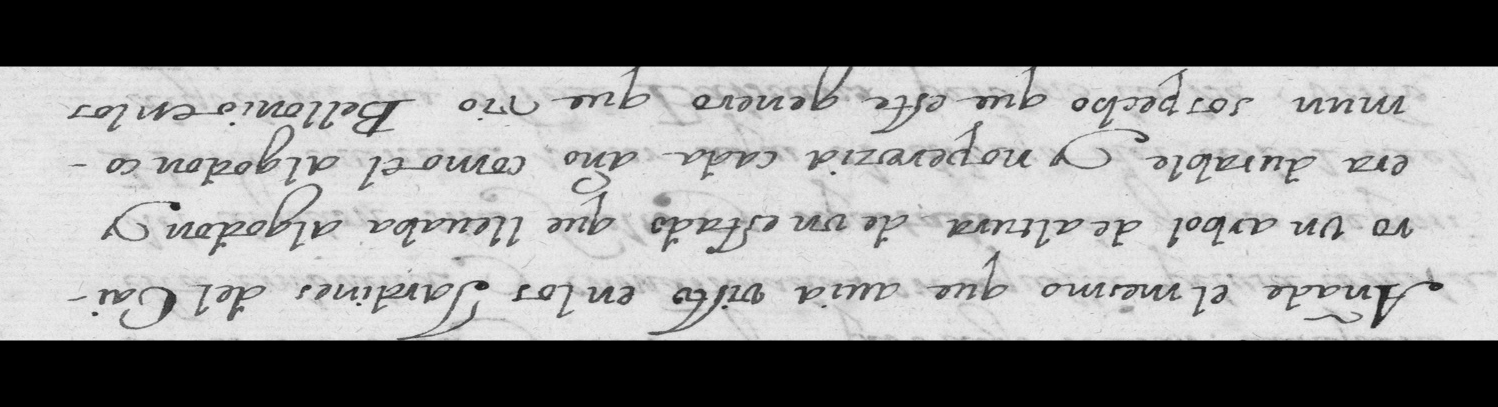 Añade el mesmo que auia visto en los Jardines del Cai-
ro vn arbol de altura de vn estado que lleuaba algodon Y
era durable Y no perezia cada año como el algodon co-
mun sospecho que este genero que vio Bellonio en los